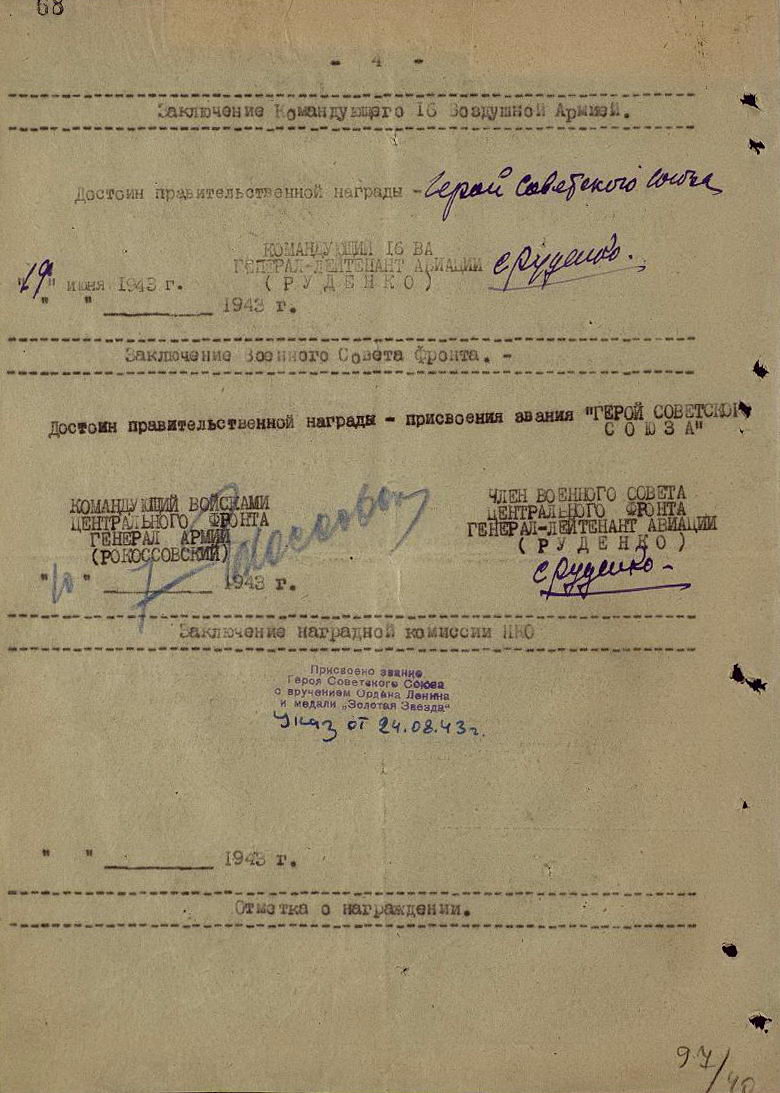 68
- 4 -
Заключение Командующего 16 Воздушной Армией.
Достоин правительственной награды - Герой Советского Союза
КОМАНДУЮЩИЙ 16 ВА
ГЕНЕРАЛ-ЛЕЙТЕНАНТ АВИАЦИИ СРуденко.
"19" июня 1943 г. ( Р У Д Е Н К О )
" " 1943 г.
Заключение Военного Совета фронта. -
Достоин правительственной награды - присвоения звания "ГЕРОЙ СОВЕТСКОГО
С О Ю З А"
КОМАНДУЮЩИЙ ВОЙСКАМИ
ЦЕНТРАЛЬНОГО ФРОНТА
ГЕНЕРАЛ АРМИИ
(РОКОССОВСКИЙ)
Рокоссовск
"10" 7 1943 г.
ЧЛЕН ВОЕННОГО СОВЕТА
ЦЕНТРАЛЬНОГО ФРОНТА
ГЕНЕРАЛ-ЛЕЙТЕНАНТ АВИАЦИИ
( Р У Д Е Н К О )
СРуденко-
Заключение наградной комиссии НКО
Присвоено звание
Героя Советского Союза
с вручением Ордена Ленина
и медали „Золотая Звезда"
Указ от 24.08.43г.
" " 1943 г.
Отметка о награждении.
97/40